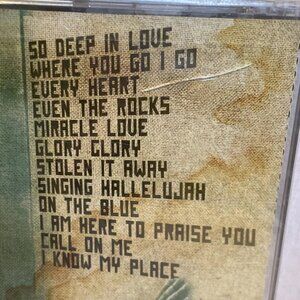 SO DEEP IN LOVE
WHERE YOU GO I GO
EVERY HEART
EVEN THE ROCKS
MIRACLE LOVE
GLORY GLORY
STOLEN IT AWAY
SINGING HALLELUJAH
ON THE BLUE
I AM HERE TO PRAISE YOU
CALL ON ME
I KNOW MY PLACE